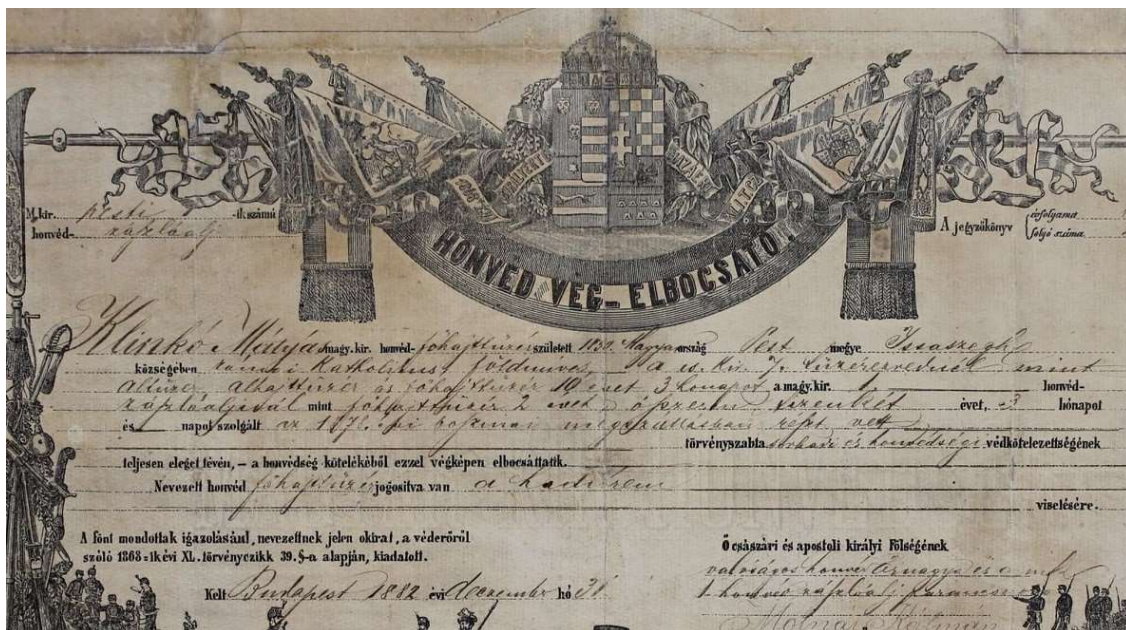 KIRÁLYÉRT
HAZÁÉRT
HONVÉD VÉG-ELBOCSATÓ.
M. kir. pesti 1 -ik számú
honvéd- zászlóalj
A jegyzőkönyv
évfolyama
folyó száma
Klinkó Mátyás magy. kir. honvéd- főhajtűzér született 1850. Magyarország Pest megye Issaszegh
községében római Katholikus földmives, a cs. kir. 7. tüzérezrednél mint
altüzér és főhajtüzér 10 évet 3 hónapot a magy. kir. 1 honvéd-
zászlóaljnál mint 2 évet, összesen tizenkét évet, 3 hónapot
és napot szolgált az 1878. évi megszállásban részt vett
törvényszabta sorhadi és honvédségi védkötelezettségének
teljesen eleget tévén, – a honvédség kötelékéből ezzel végképen elbocsáttatik.
Nevezett honvéd jogosítva van a hadi érem
viselésére.
A fönt mondottak igazolásául, nevezettnek jelen okirat, a véderőről
szóló 1868-ik évi XL. törvényczikk 39. §-a alapján, kiadatott.
Ő császári és apostoli királyi Fölségének
valóságos honvéd őrnagya és a m. k.
1 honvéd zászlóalj parancsnoka
Kelt Budapest 1882 évi deczember hó 31.
Molnár Kálmán